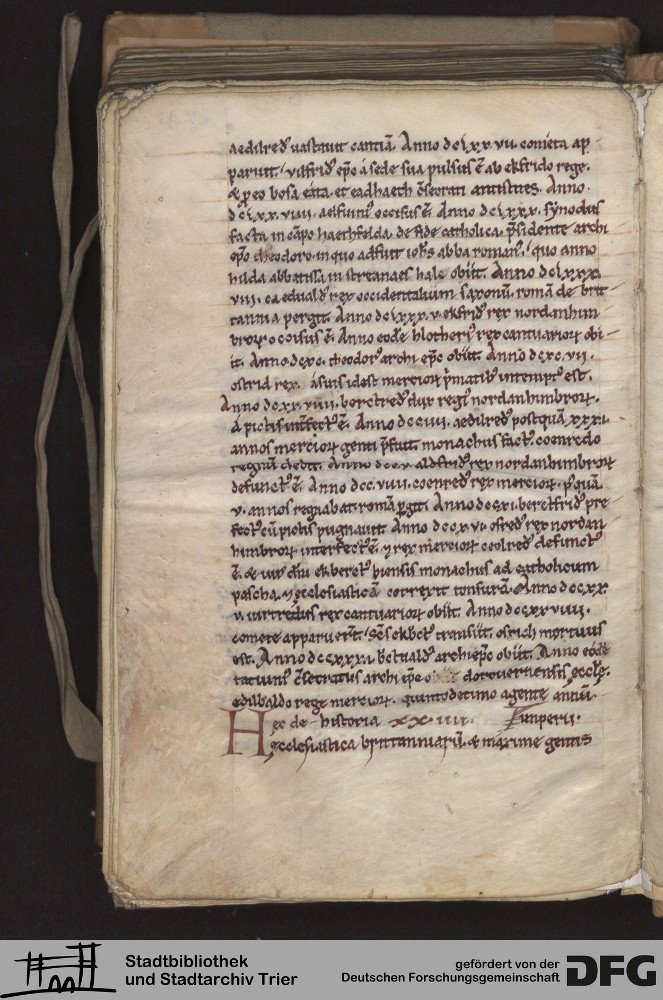 aedilred' uastauit cantiā. Anno dclxx vii. cometa ap
paruit. uilfrid' ep̄c a sede sua pulsus ē ab ekfrido rege.
& p eo bosa eata. et eadhaeth c̄secrati antistites. Anno.
dclxxviiii. aelfuini' occisus ē. Anno dclxxx. synodus
facta in cāpo haethfelda. de fide catholica. p̄sidente archi
ep̄o theodoro. in quo adfuit ioh̄s abba roman'. quo anno
hilda abbatissa in streanaes hale obiit. Anno dclxxx
viii. ca eduald' rex occidentalium saxonū. romā de brit
tannia pergit. Anno dclxxx.v. ekfrid' rex nordanhim
broꝝ. occisus ē. Anno eodē hlotheri' rex cantuarioꝝ obi
it. Anno dcxc. theodor' archi ep̄c obiit. Anno dcxc.vii.
ostrid rex. a suis idest merceoꝝ p̄matib' interempt' est.
Anno dcxcviiii. berctred' dux regi' nordanhimbroꝝ.
a pictis int̄fect' ē. Anno dcciiii. aedilred' postquā xxxi.
annos mercioꝝ genti p̄fuit. monachus fact'. coenredo
regnū dedit. Anno dcc.v. aldfrid' rex nordanhimbroꝝ
defunct' ē. Anno dcc.viiii. coenred' rex mercioꝝ. p'quā
v. annos regnabat. romā p̱git. Anno dccxi. berctfrid' pre
fect' cū pictis pugnauit. Anno dccxvi. osred' rex nordan
himbroꝝ interfect' ē. ⁊ rex mercioꝝ ceolred' defunct'
ē. & uir dn̄i ekberct' hiensis monachus ad catholicum
pascha. ⁊ ecclesiasticā correxit tonsurā. Anno dccxx
v. uirtredus rex cantuarioꝝ obiit. Anno dccxxviiii.
comete apparuer̄t. sc̄s ekbct' transiit. osrich mortuus
est. Anno dccxxxi. b̄ctuald' archiep̄c obiit. Anno eodē
tatuuni' c̄secratus archi ep̄c dorouernensis eccl̄e.
edilbaldo rege mercioꝝ. quinto decimo agente annū.
Hec de historia xx.iiii. ⁊ imperii.
ecclesiastica brittanniarū. & maxime gentis
Stadtbibliothek
und Stadtarchiv Trier
gefördert von der
Deutschen Forschungsgemeinschaft
DFG